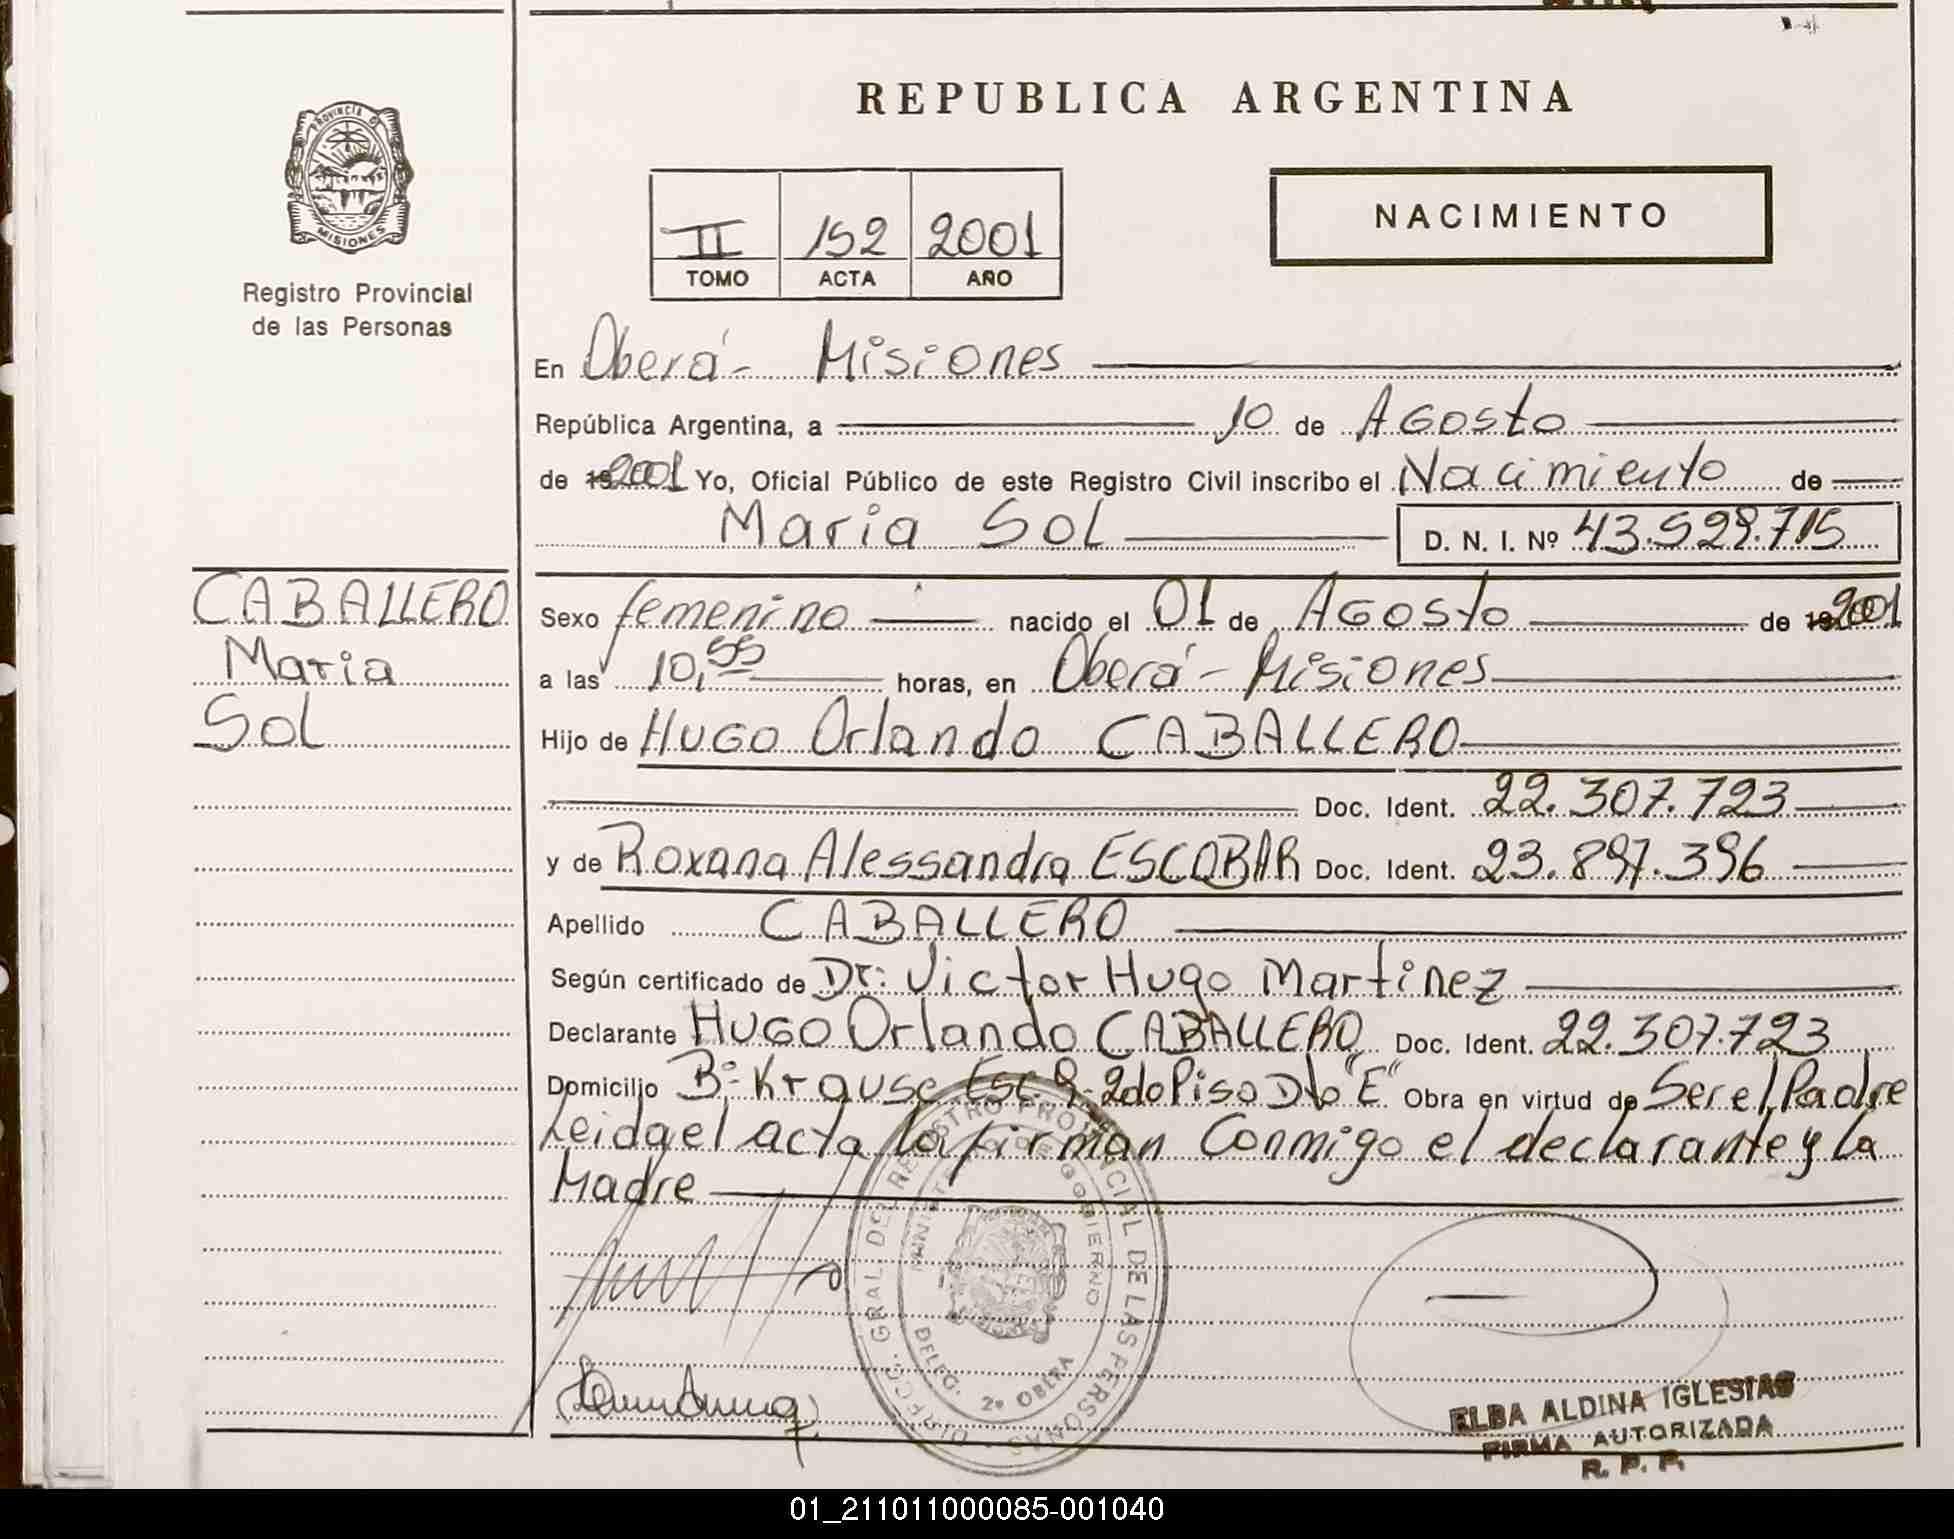 REPUBLICA ARGENTINA
PROVINCIA D
MISIONES
Registro Provincial
de las Personas
II 152 2001
TOMO ACTA AÑO
NACIMIENTO
En Oberá - Misiones
República Argentina, a 10 de Agosto
de 19 2001 Yo, Oficial Público de este Registro Civil inscribo el Nacimiento de
Maria Sol D. N. I. Nº 43.529.715
CABALLERO
Maria
Sol
Sexo femenino nacido el 01 de Agosto de 19 2001
a las 10,55 horas, en Oberá - Misiones
Hijo de Hugo Orlando CABALLERO
Doc. Ident. 22.307.723
y de Roxana Alessandra ESCOBAR Doc. Ident. 23.897.396
Apellido CABALLERO
Según certificado de Dr: Victor Hugo Martinez
Declarante Hugo Orlando CABALLERO Doc. Ident. 22.307.723
Domicilio Bº Krause Esc 9-2do Piso Dto "E" Obra en virtud de Ser el Padre
Leida el acta la firman Conmigo el declarante y la
Madre
DIREC. GRAL DEL REGISTRO PROVINCIAL DE LAS PERSONAS
MINISTERIO DE GOBIERNO
DELEG. 2ª OBERA
ELBA ALDINA IGLESIAS
FIRMA AUTORIZADA
R. P. P.
01_211011000085-001040